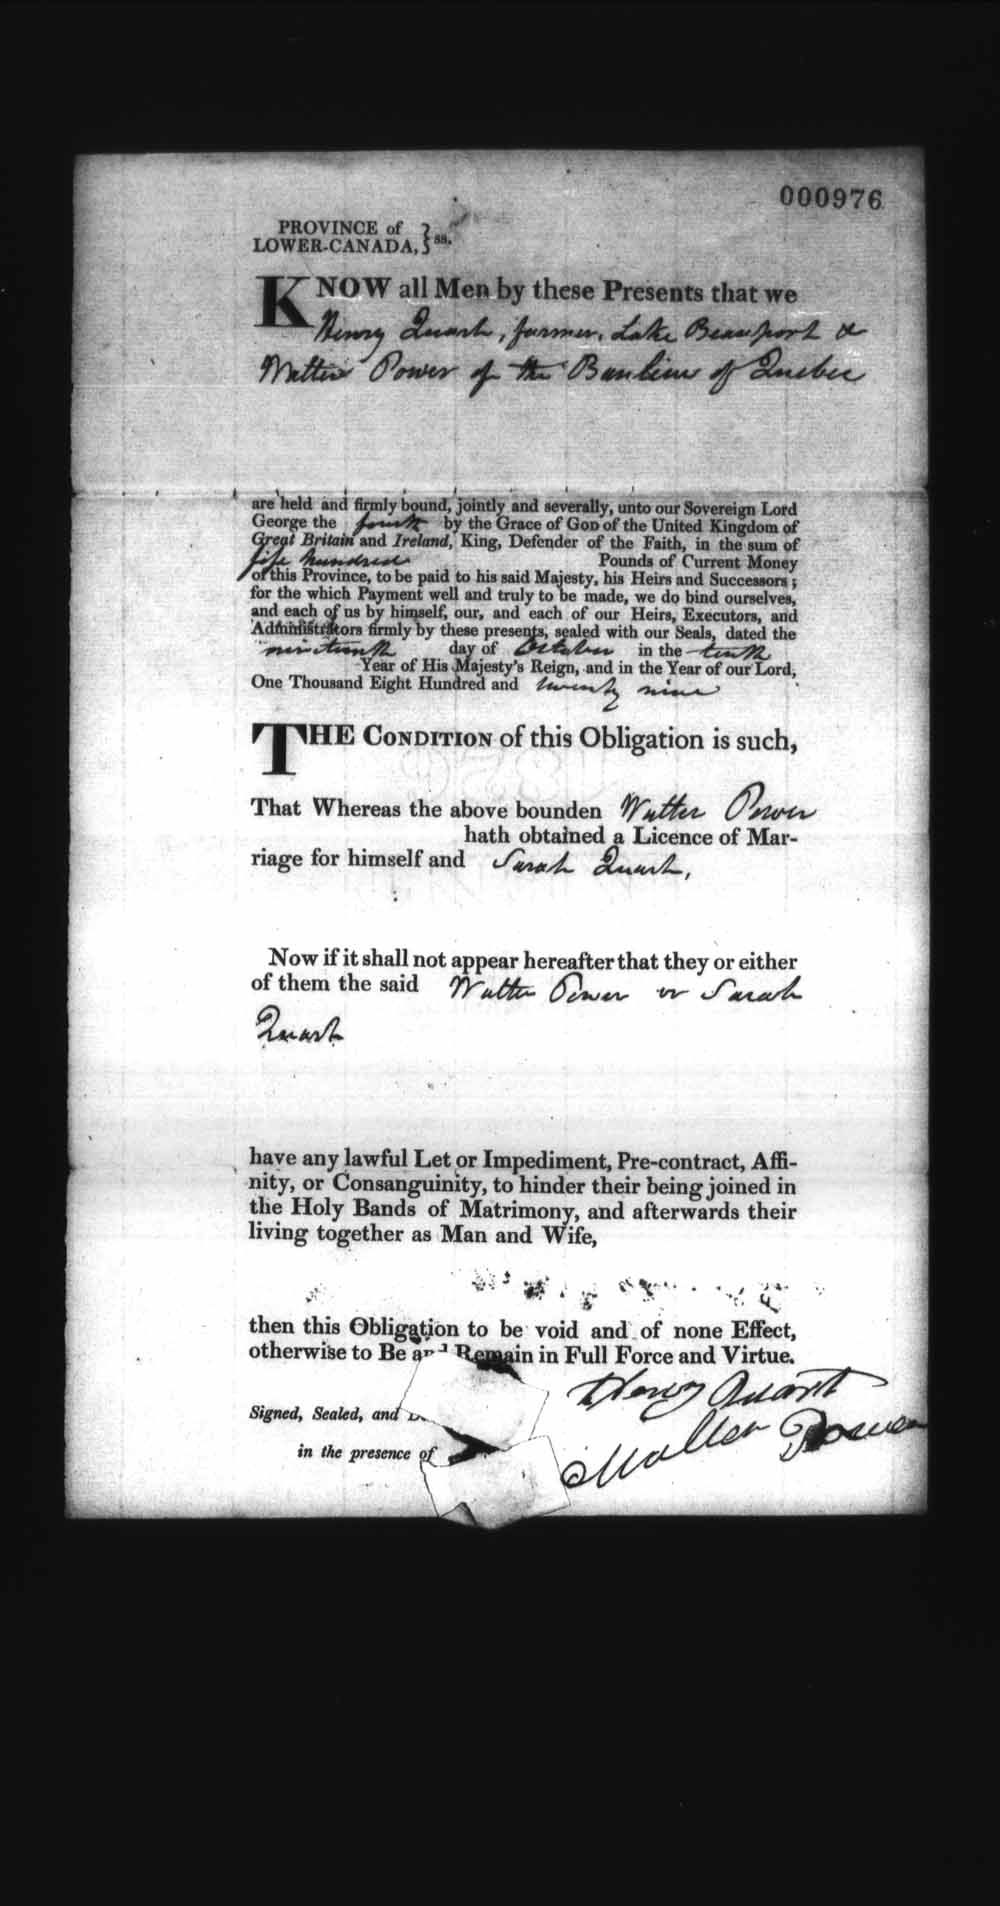 000976
PROVINCE of
LOWER-CANADA, } ss.
KNOW all Men by these Presents that we
Henry Quart, farmer, Lake Beauport &
Walter Power of the Banlieu of Quebec
are held and firmly bound, jointly and severally, unto our Sovereign Lord
George the fourth by the Grace of GOD of the United Kingdom of
Great Britain and Ireland, King, Defender of the Faith, in the sum of
five hundred Pounds of Current Money
of this Province, to be paid to his said Majesty, his Heirs and Successors;
for the which Payment well and truly to be made, we do bind ourselves,
and each of us by himself, our, and each of our Heirs, Executors, and
Administrators firmly by these presents, sealed with our Seals, dated the
nineteenth day of October in the tenth
Year of His Majesty's Reign, and in the Year of our Lord,
One Thousand Eight Hundred and twenty nine
THE CONDITION of this Obligation is such,
That Whereas the above bounden Walter Power
hath obtained a Licence of Mar-
riage for himself and Sarah Quart,
Now if it shall not appear hereafter that they or either
of them the said Walter Power or Sarah
Quart
have any lawful Let or Impediment, Pre-contract, Affi-
nity, or Consanguinity, to hinder their being joined in
the Holy Bands of Matrimony, and afterwards their
living together as Man and Wife,
then this Obligation to be void and of none Effect,
otherwise to Be and Remain in Full Force and Virtue.
Henry Quart
Signed, Sealed, and
Walter Power
in the presence of